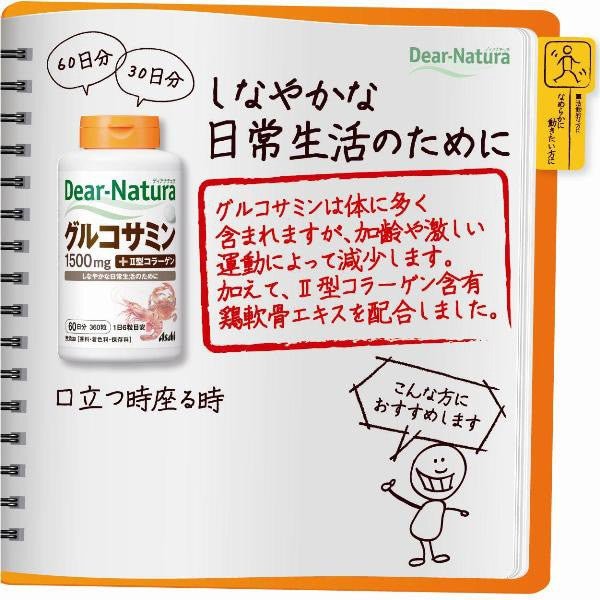 60日分
30日分
Dear-Natura
ディアナチュラ
しなやかな
日常生活のために
■活動的な方に
なめらかに
動きたい方に
グルコサミンは体に多く
含まれますが、加齢や激しい
運動によって減少します。
加えて、Ⅱ型コラーゲン含有
鶏軟骨エキスを配合しました。
ディアナチュラ
Dear-Natura
グルコサミン
1500mg +Ⅱ型コラーゲン
しなやかな日常生活のために
60日分 360粒 1日6粒目安
無添加 【香料・着色料・保存料】
Asahi
口立つ時座る時
こんな方に
おすすめします